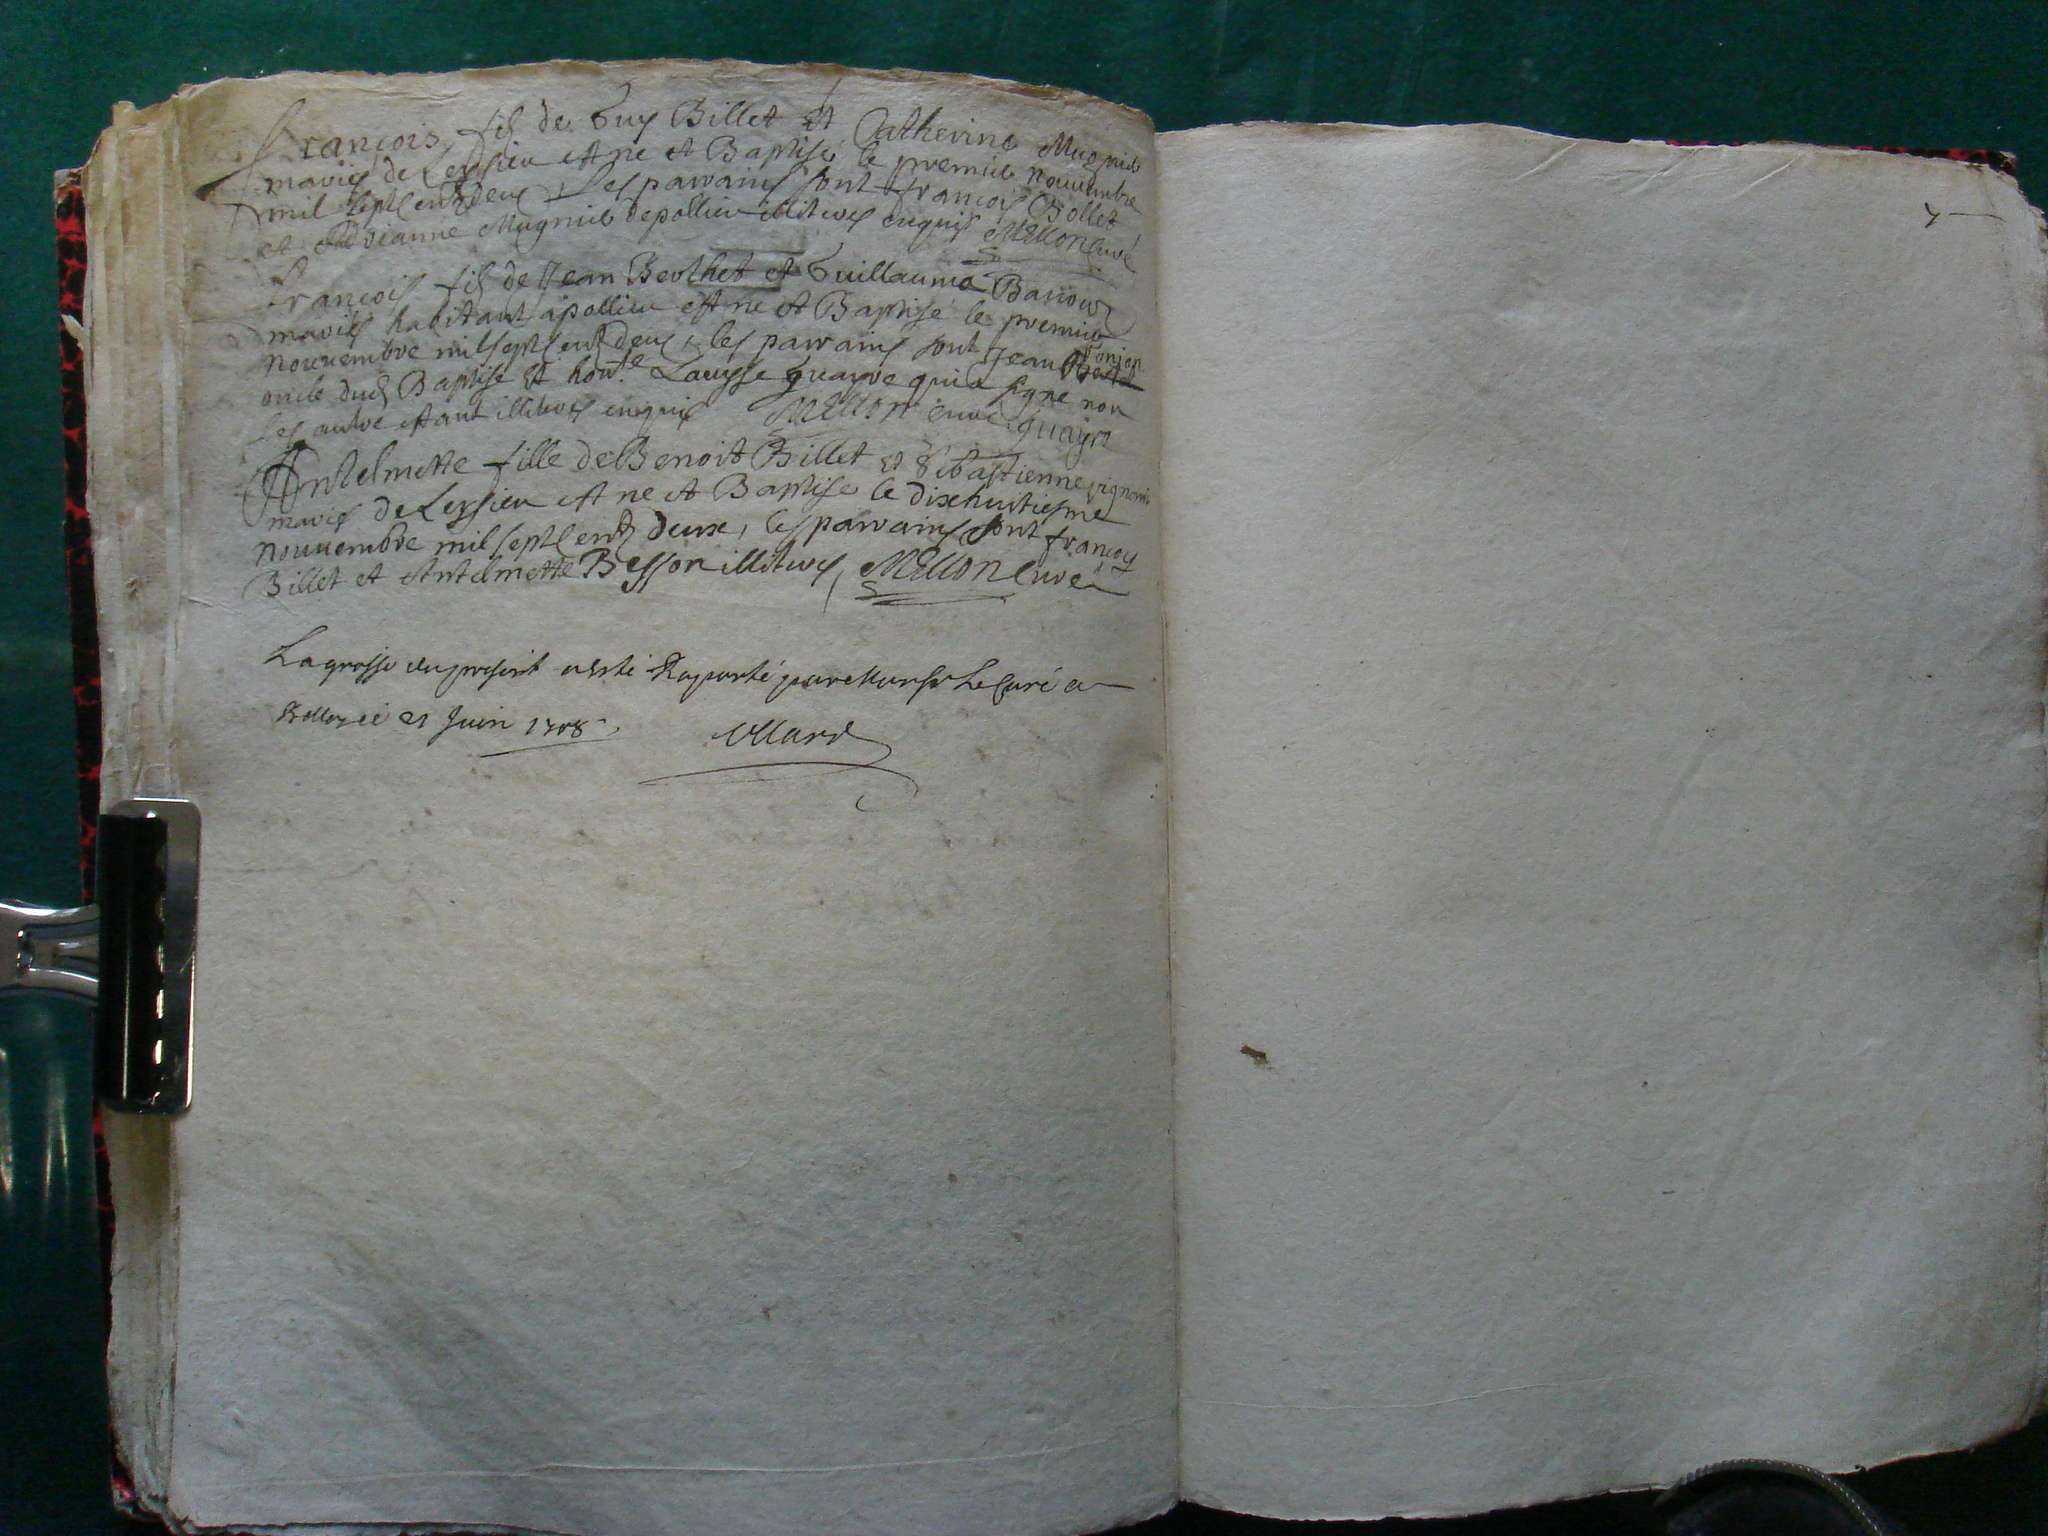 François fils de Guy Billet et Catherine Mugnier
mariés de Leyssieu est né et Baptisé le premier nouembre
mil sept centz deux, Les parrains sont françois Bollet
et Adrianne Mugnier de pollieu illiteres enquis Mellon curé
François fils de Jean Berthet et Guillauma Barrour
mariés habitant a pollieu est né et Baptisé le premier
nouuembre mil sept centz deux, les parrains sont Jean
oncle dud Baptisé et hon.te Louyse guayre qui a signe non
les autre estant illiteres enquis Mellon curé guayre
Anthelmette fille de Benoit Billet et Sebastienne
mariés de Leyssieu est né et Baptisé le dixhuitiesme
nouuembre mil sept centz deux, les parrains sont françoys
Billet et Antelmette Besson illiteres, Mellon curé
La grosse du present a esté Raporté par Monsr Le Curé a
Belley ce 21 Juin 1708.
7